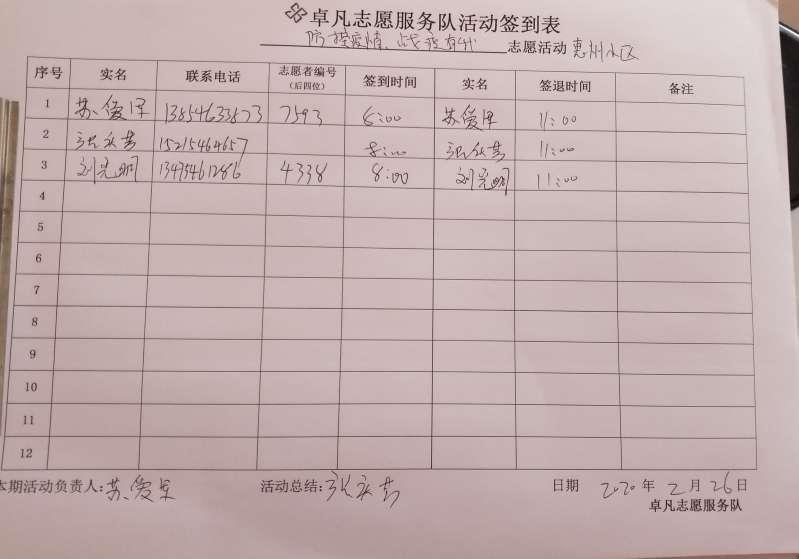 卓凡志愿服务队活动签到表
防控疫情、战疫有我 志愿活动 惠州小区
序号 实名 联系电话 志愿者编号（后四位） 签到时间 实名 签退时间 备注
1 苏爱 13854633873 7593 8:00 苏爱 11:00
2 15215464657 8:00 11:00
3 刘光明 13475461286 4338 8:00 刘光明 11:00
4
5
6
7
8
9
10
11
12
本期活动负责人: 苏爱 活动总结: 张 日期 2020年2月26日
卓凡志愿服务队